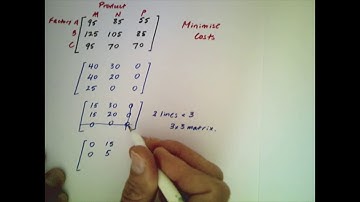 Product
M N P
Factory A 95 85 55
B 125 105 85
C 95 70 70
Minimise
Costs
40 30 0
40 20 0
25 0 0
15 30 0
15 20 0
0 0
2 lines < 3
3x3 matrix.
0 15
0 5